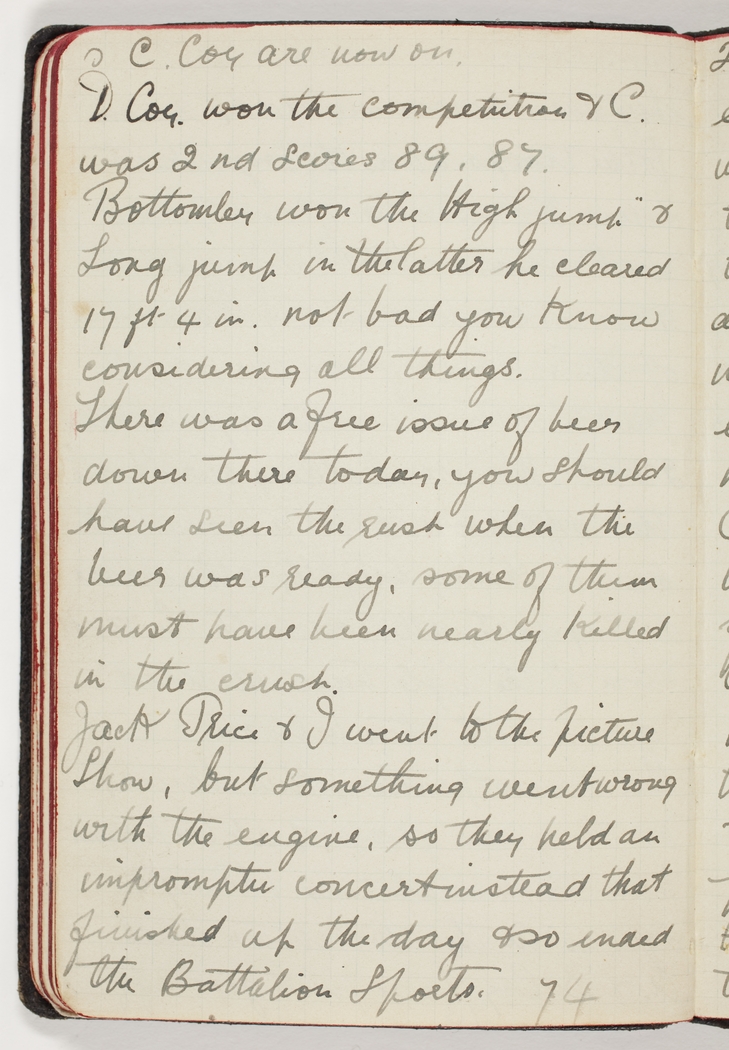 C. Coy are now on.
D. Coy. won the competition & C.
was 2nd Scores 89, 87.
Bottomley won the High jump" &
Long jump in the latter he cleared
17 ft 4 in. not bad you know
considering all things.
There was a free issue of beer
down there today, you should
have seen the rush when the
beer was ready, some of them
must have been nearly killed
in the crush.
Jack Price & I went to the picture
Show, but something went wrong
with the engine, so they held an
impromptu concert instead that
finished up the day & so ended
the Battalion Sports. 74